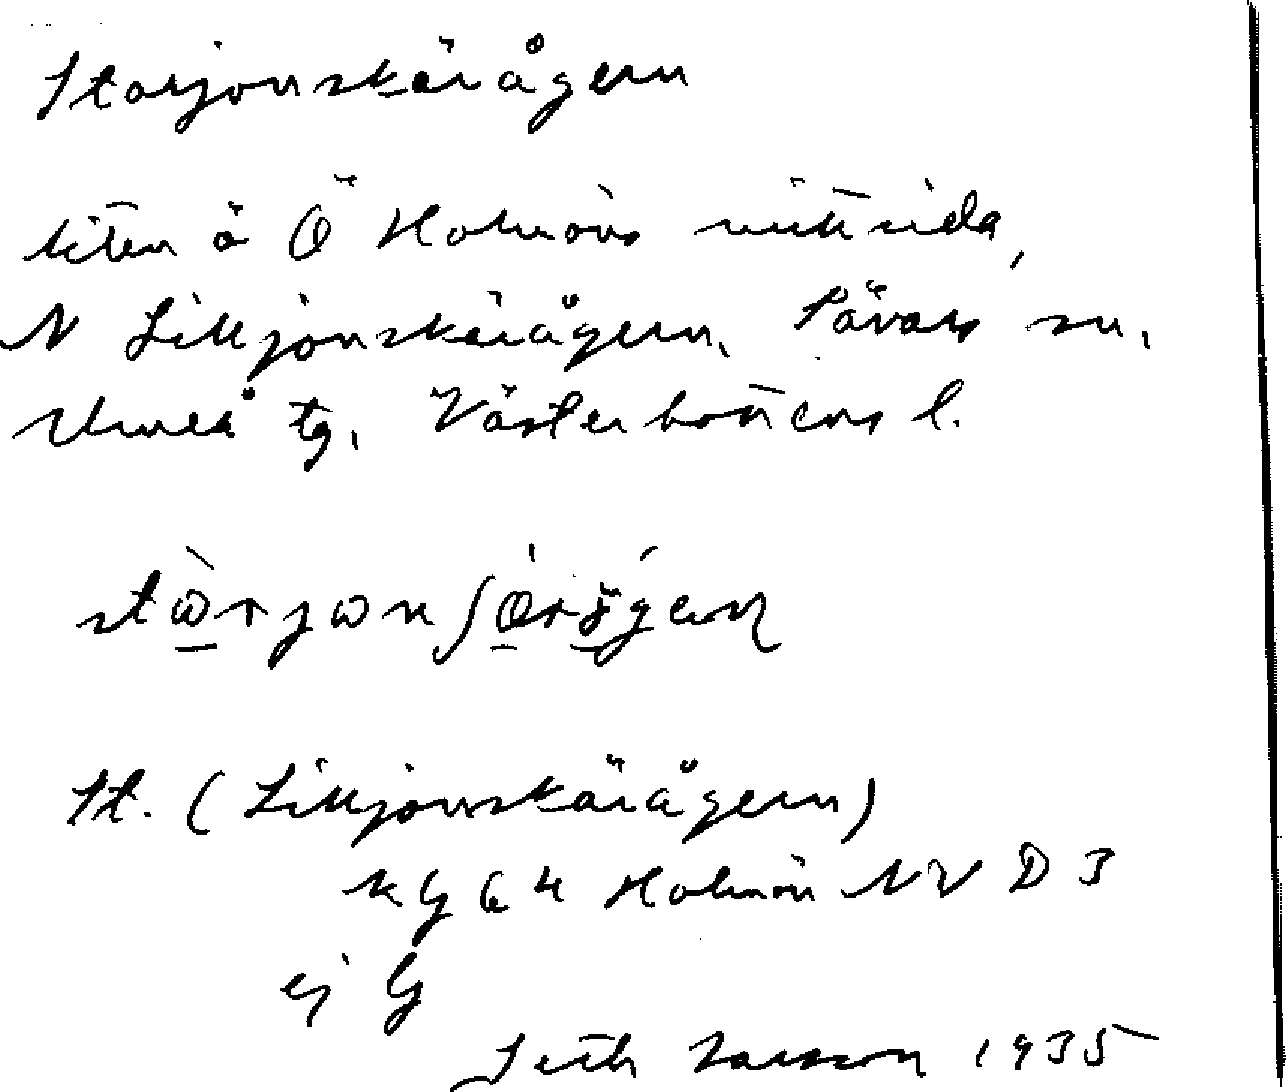 Storjonskärågern
liten ö Ö Holmöns mitt sida,
N Lilljonskärågern, Sävars sn,
Umeå tg, Västerbottens l.
St. (Lilljonskärågern)
K G 64 Holmön NV D 3
ej G
Seth Larsson 1935